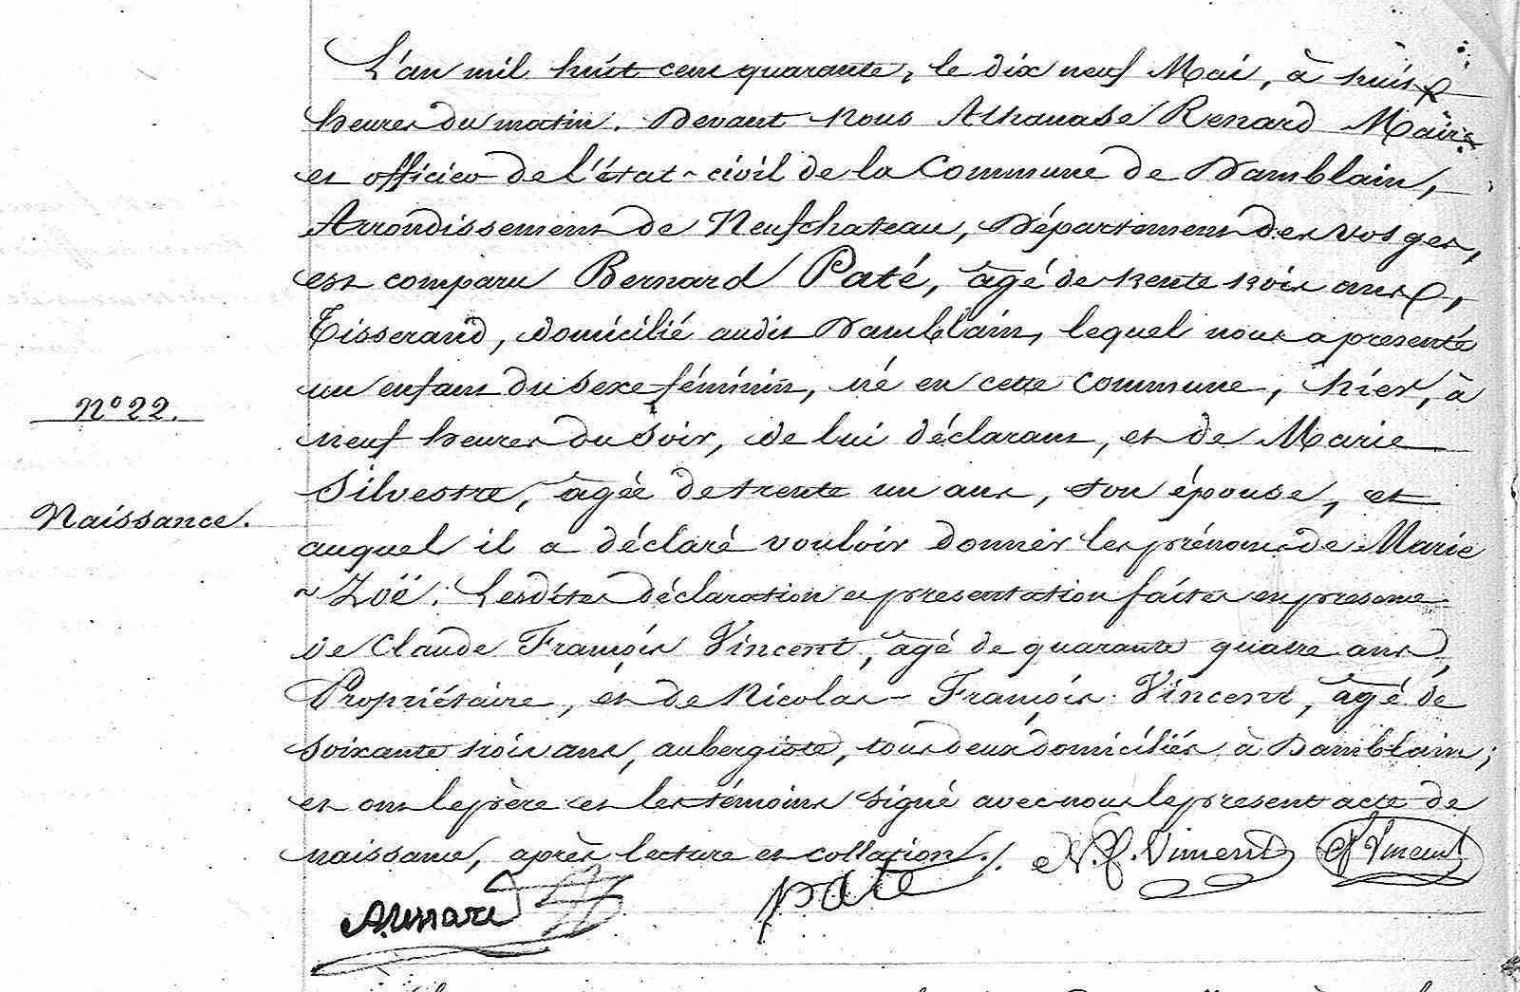 L'an mil huit cent quarante, le dix neuf Mai, à huit
heures du matin. Devant Nous Athanase Renard Maire
et officier de l'état-civil de la Commune de Damblain,
Arrondissement de Neufchateau, Département des Vosges,
est comparu Bernard Paté, âgé de trente trois ans,
Tisserand, domicilié audit Damblain, lequel nous a presenté
un enfant du sexe féminin, né en cette commune, hier, à
N° 22.
neuf heures du soir, de lui déclarant, et de Marie
Silvestre, âgée de trente un ans, son épouse, et
Naissance.
auquel il a déclaré vouloir donner les prénoms de Marie
~ Zoë. Lesdites déclaration et presentation faites en presence
de Claude François Vincent, âgé de quarante quatre ans,
Propriétaire, et de Nicolas-François Vincent, âgé de
soixante trois ans, aubergiste, tous deux domiciliés à Damblain;
et ont le père et les témoins signé avec nous le present acte de
naissance, après lecture et collation./. N.f. Vincent Cf Vincent
A. Renard paté